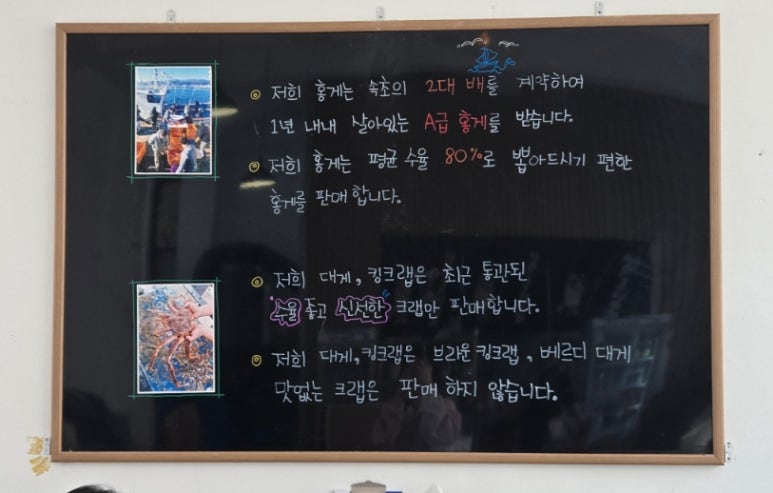 저희 홍게는 속초의 2대 배를 계약하여
1년 내내 살아있는 A급 홍게를 받습니다.
저희 홍게는 평균 수율 80%로 뽑아드시기 편한
홍게를 판매 합니다.
저희 대게, 킹크랩은 최근 통관된
수율 좋고 신선한 크랩만 판매합니다.
저희 대게, 킹크랩은 브라운 킹크랩, 베르디 대게
맛없는 크랩은 판매 하지 않습니다.